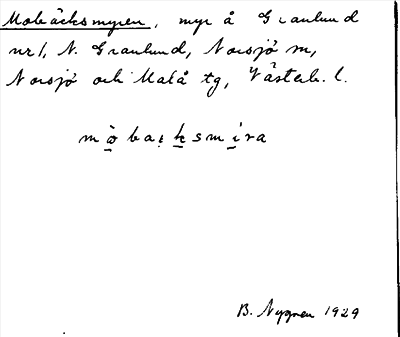 Mobäcksmyren, myr å Granlund
nr 1, N. Granlund, Norsjö sn,
Norsjö och Malå tg, Västerb. l.
mòbaḵsmira
B. Nygren 1929